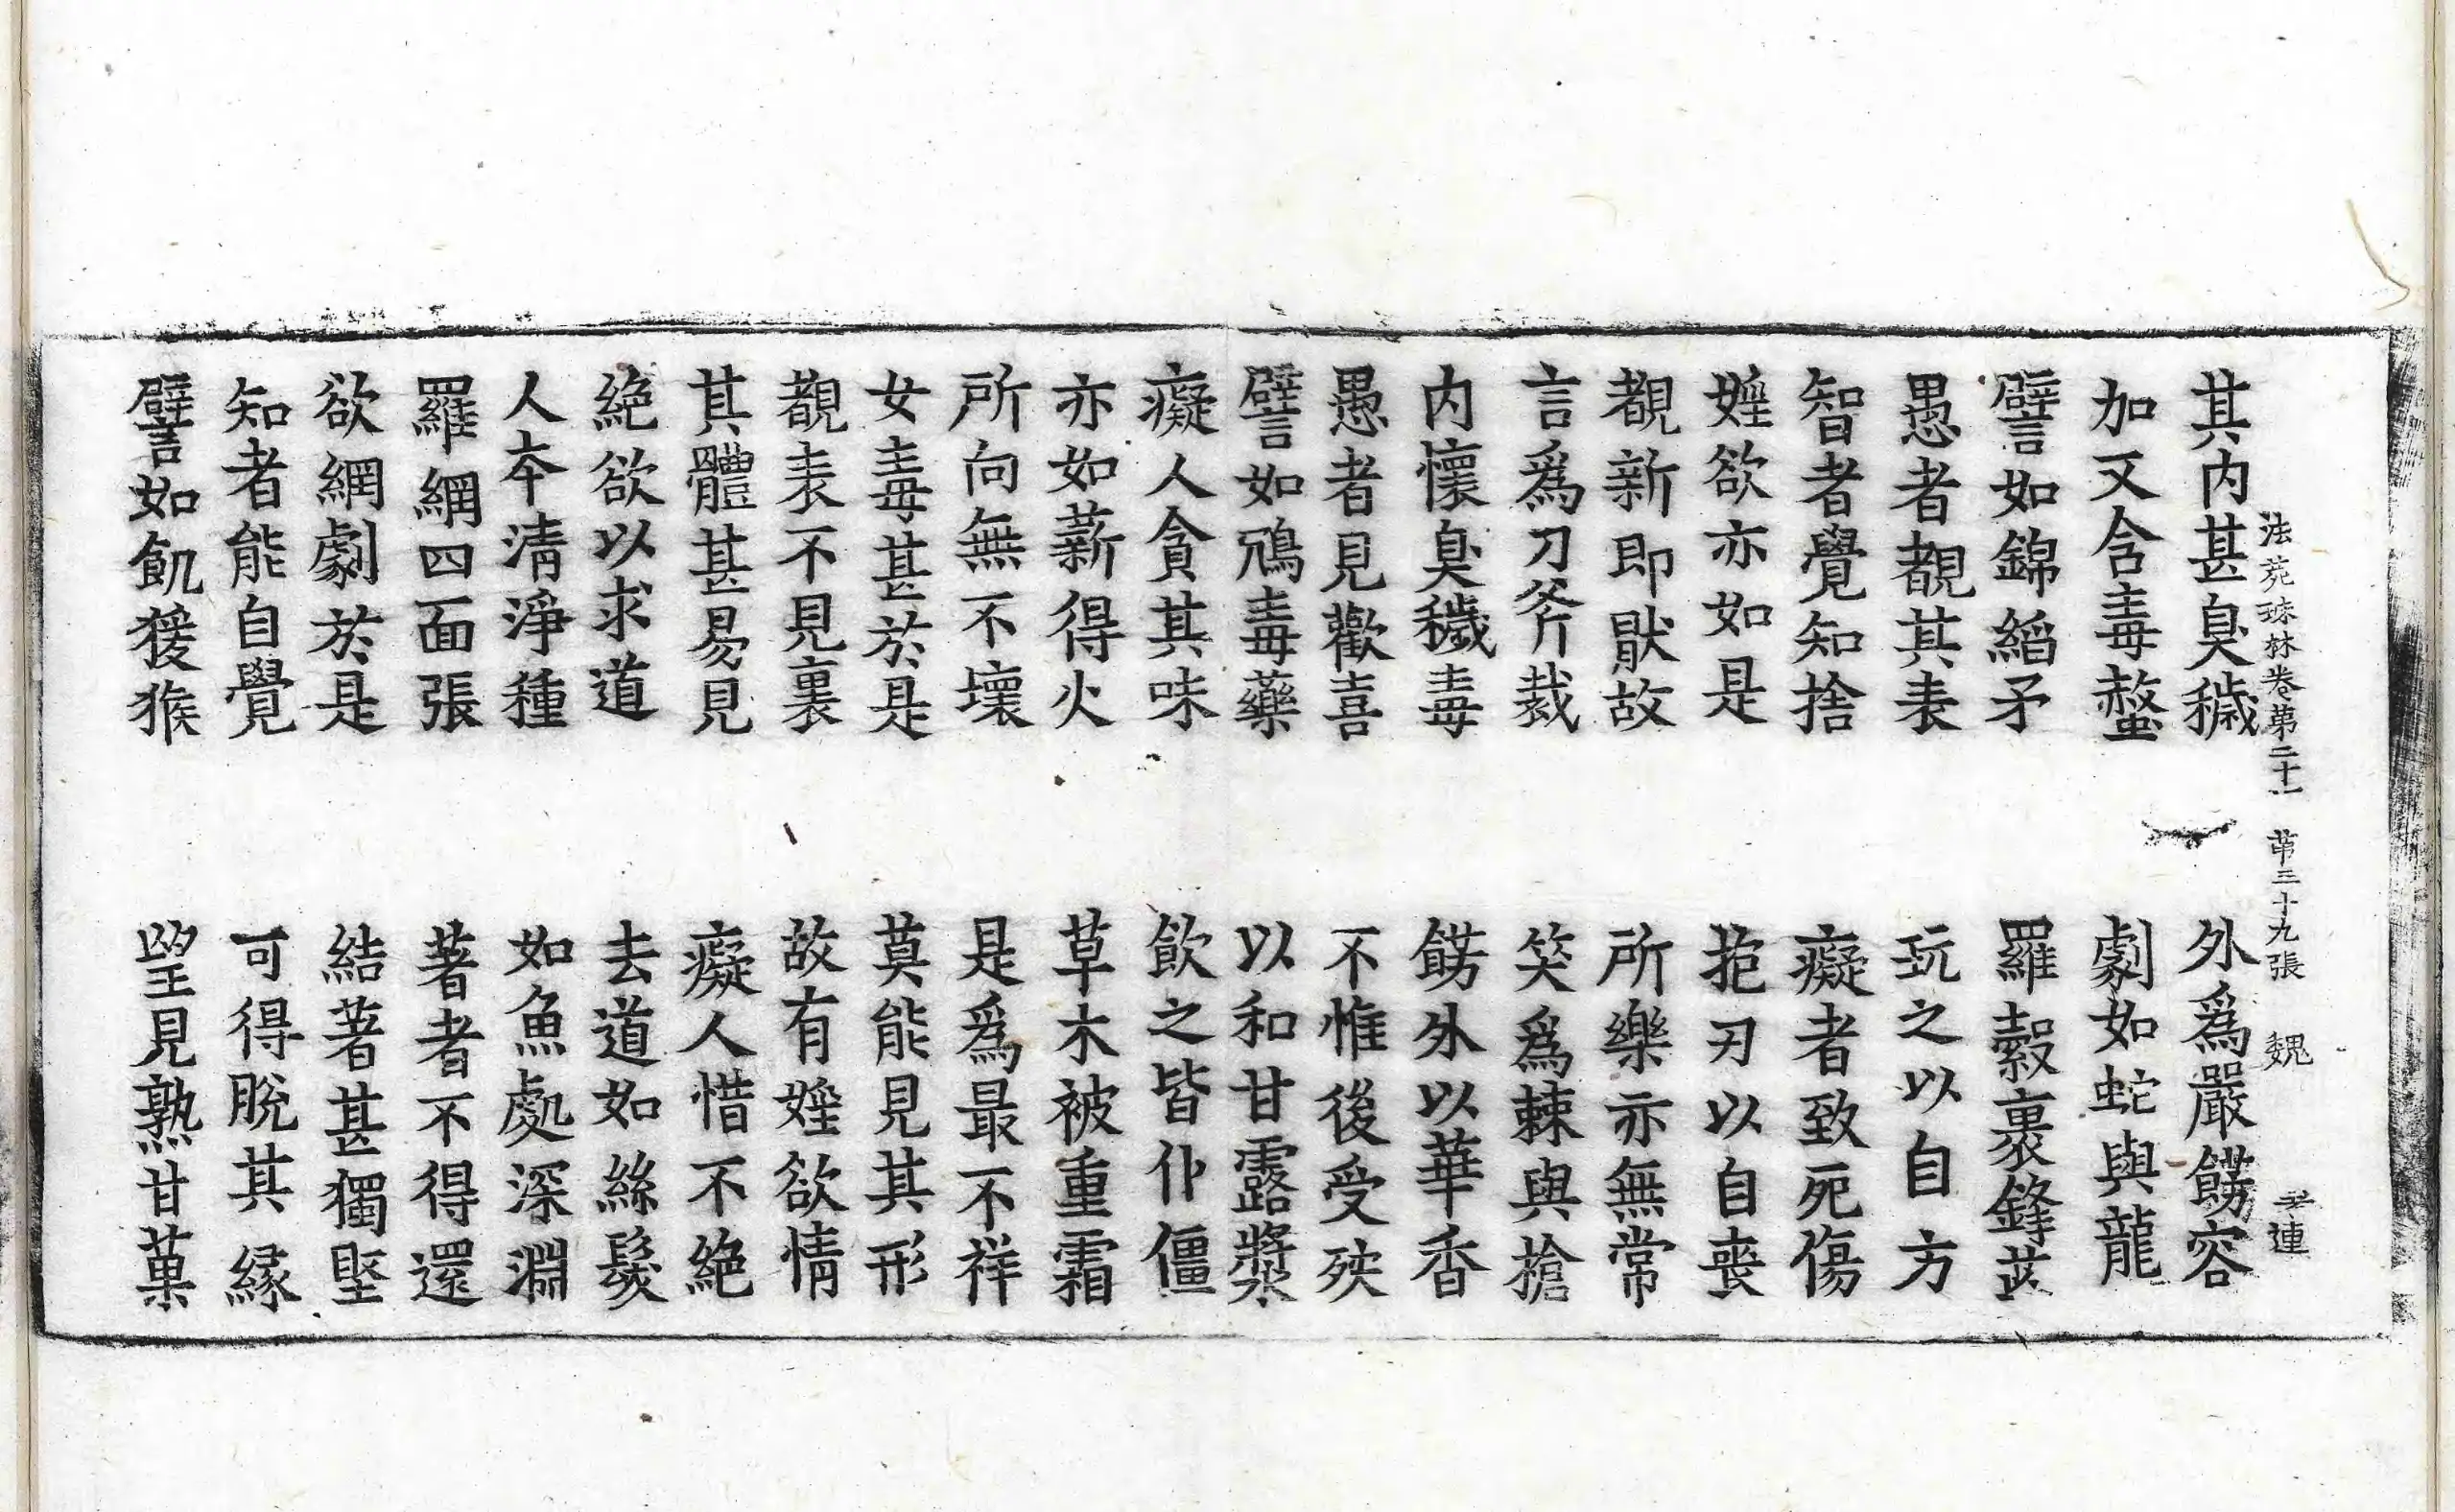 其内甚臭穢　外爲嚴餝容
法苑珠林卷第二十一　第三十九張　魏　連
加又含毒螫　劇如蛇與龍
譬如錦綉矛　羅縠裹鋒芒
愚者覩其表　玩之以自方
智者覺知捨　癡者致死傷
婬欲亦如是　抱刃以自喪
覩新即猒故　所樂亦無常
言爲刀斧裁　笑爲棘與槍
内懷臭穢毒　餝外以華香
愚者見歡喜　不惟後受殃
譬如鴆毒藥　以和甘露漿
癡人貪其味　飲之皆仆僵
亦如薪得火　草木被重霜
所向無不壞　是爲最不祥
女毒甚於是　莫能見其形
覩表不見裏　故有婬欲情
其體甚易見　癡人惜不絶
絶欲以求道　去道如絲髮
人本清淨種　如魚處深淵
羅網四面張　著者不得還
欲網劇於是　結著甚獨堅
知者能自覺　可得脫其縁
譬如飢猨猴　望見熟甘菓